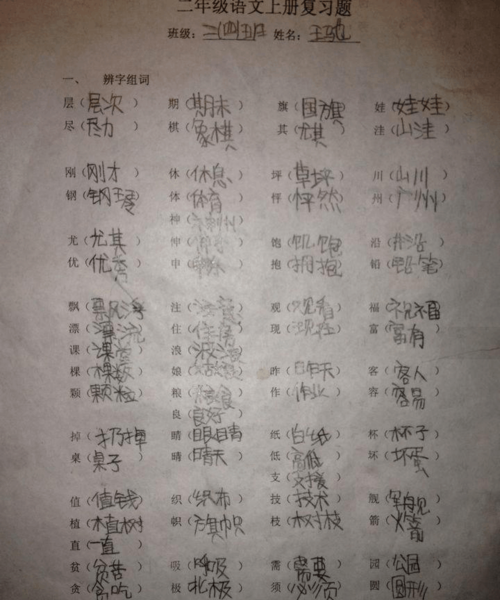 二年级语文上册复习题
班级：二(四)班 姓名：
一、 辨字组词
层（层次） 期（期末） 旗（国旗） 娃（娃娃）
尽（尽力） 棋（象棋） 其（尤其） 洼（山洼）
刚（刚才） 休（休息） 坪（草坪） 川（山川）
钢（钢琴） 体（体育） 怦（怦然） 州（广州）
神（ ）
尤（尤其） 仲（ ） 饱（饥饱） 沿（井沿）
优（优秀） 申（ ） 抱（拥抱） 铅（铅笔）
飘（飘浮） 注（ ） 观（观看） 福（祝福）
漂（漂流） 住（住房） 现（现在） 富（富有）
课（课堂） 浪（波浪）
棵（棵数） 娘（ ） 昨（昨天） 客（客人）
颗（颗粒） 粮（ ） 作（作业） 容（容易）
良（良好）
掉（扔掉） 睛（眼睛） 纸（白纸） 杯（杯子）
桌（桌子） 晴（晴天） 低（高低） 坏（坏蛋）
支（支援）
值（值钱） 织（织布） 技（技术） 舰（军舰）
植（植树） 帜（旗帜） 枝（树枝） 箭（火箭）
直（一直）
贫（贫苦） 吸（呼吸） 需（需要） 园（公园）
贪（贪吃） 极（北极） 须（必须） 圆（圆形）